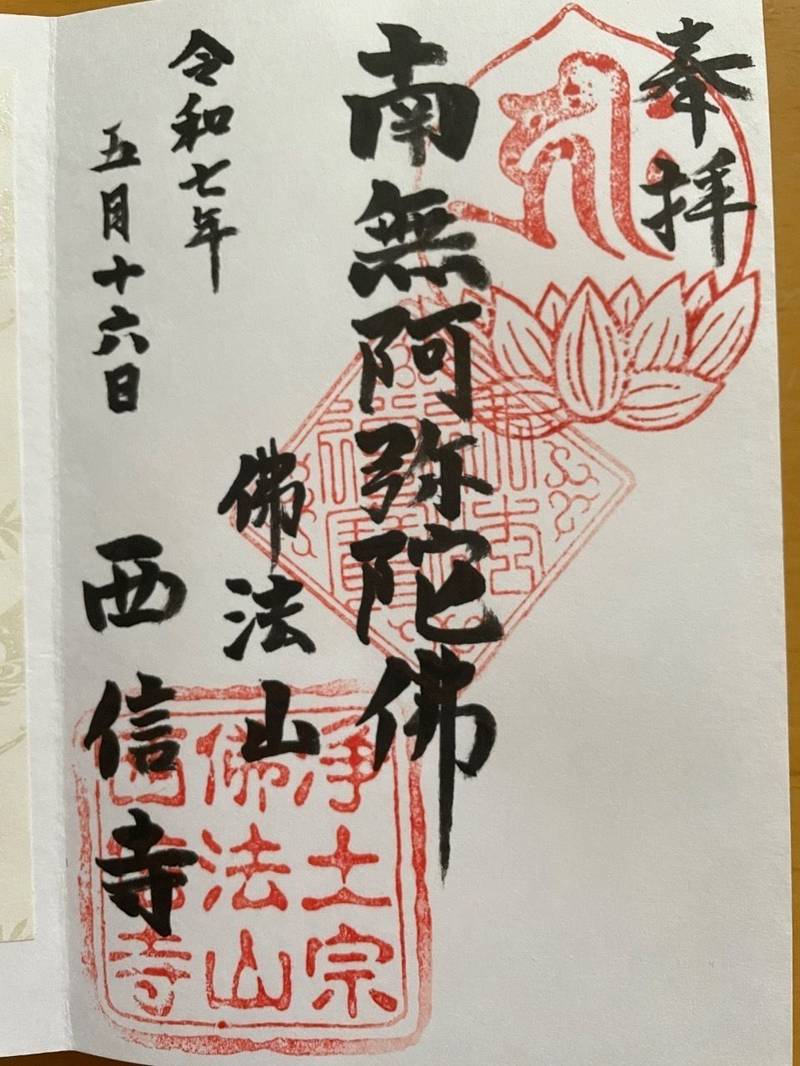 奉拝
南無阿弥陀佛
佛法僧寶
令和七年
五月十六日
佛法山
西信寺
浄土宗
佛法山
西信寺